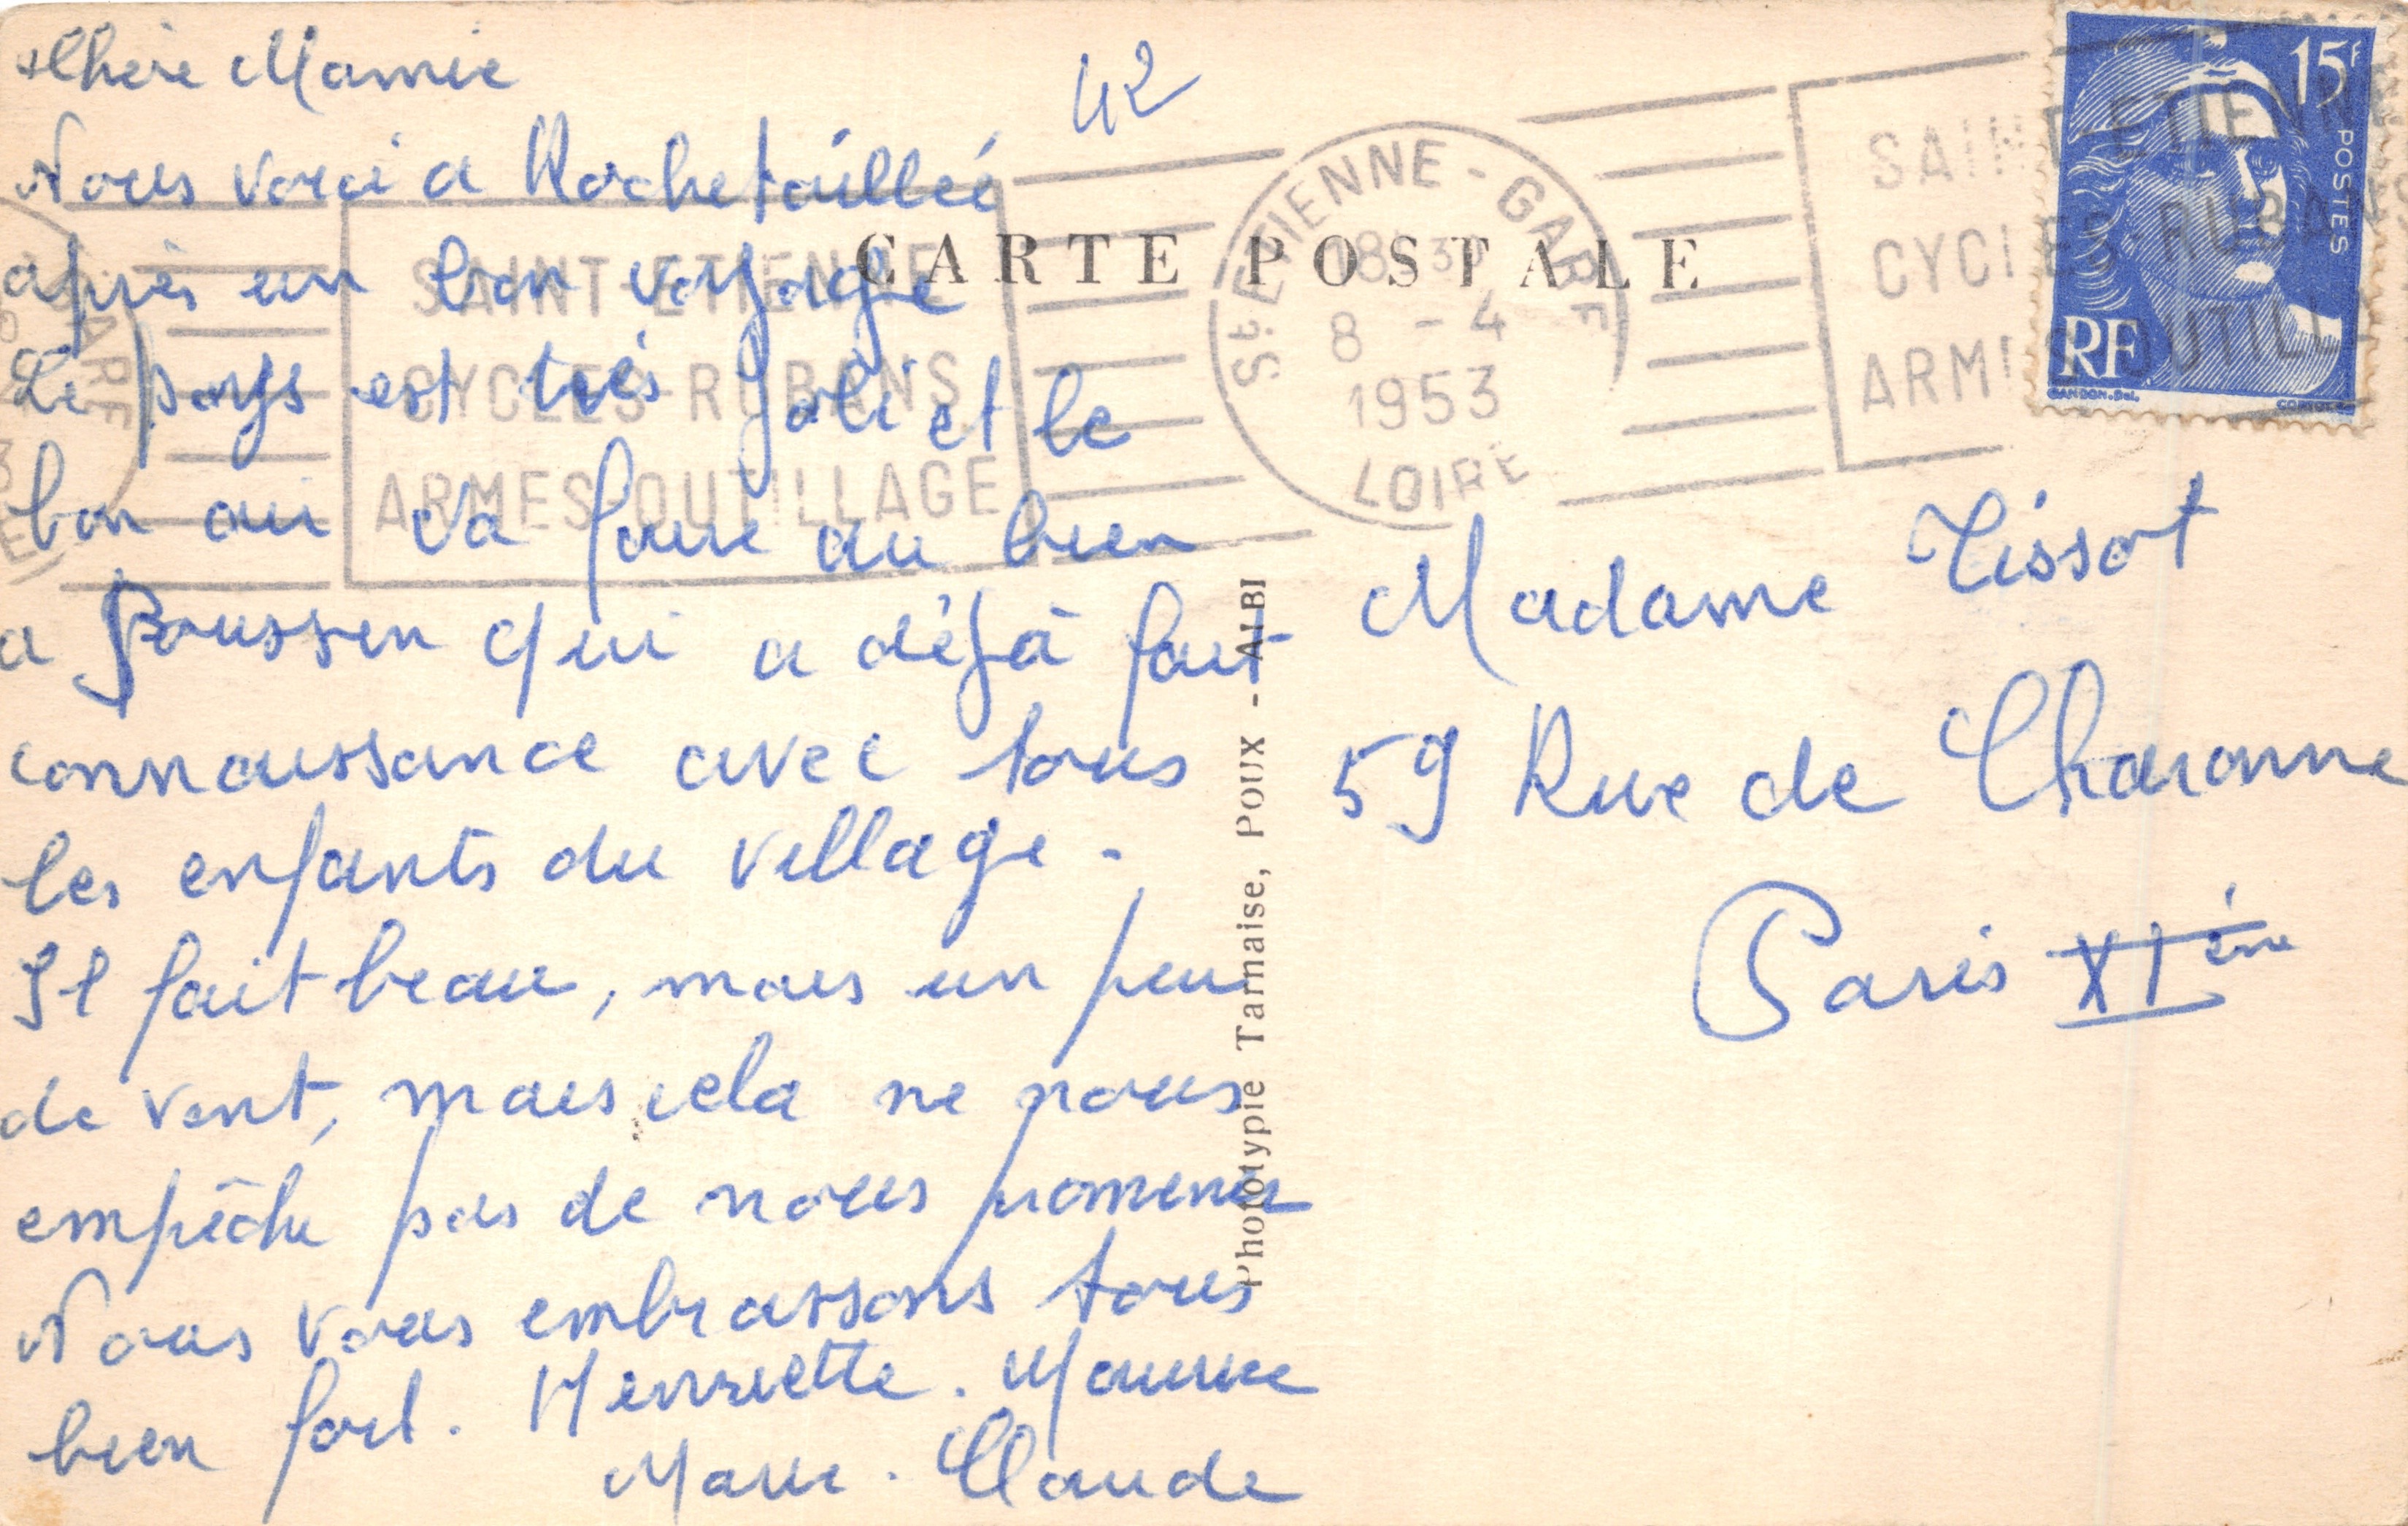 Chère Mamie
Nous voici a Rochetaillée
après un bon voyage
Le pays est très Joli et le
bon air va faire du bien
a Poussin qui a déjà fait
connaissance avec tous
les enfants du village.
Il fait beau, mais un peu
de vent, mais cela ne nous
empêche pas de nous promener
Nous vous embrassons tous
bien fort. Henriette. Maurice
Marie. Claude
42
CARTE POSTALE
St ETIENNE-GARE
18H30
8 - 4
1953
LOIRE
SAINT-ETIENNE
CYCLES-RUBANS
ARMES-OUTILLAGE
SAINT-ETIENNE
CYCLES RUBANS
ARMES OUTILLA
15F
POSTES
RF
GANDON.Del.
Phototypie Tarnaise, POUX - ALBI
Madame Tissot
59 Rue de Charonne
Paris XIème